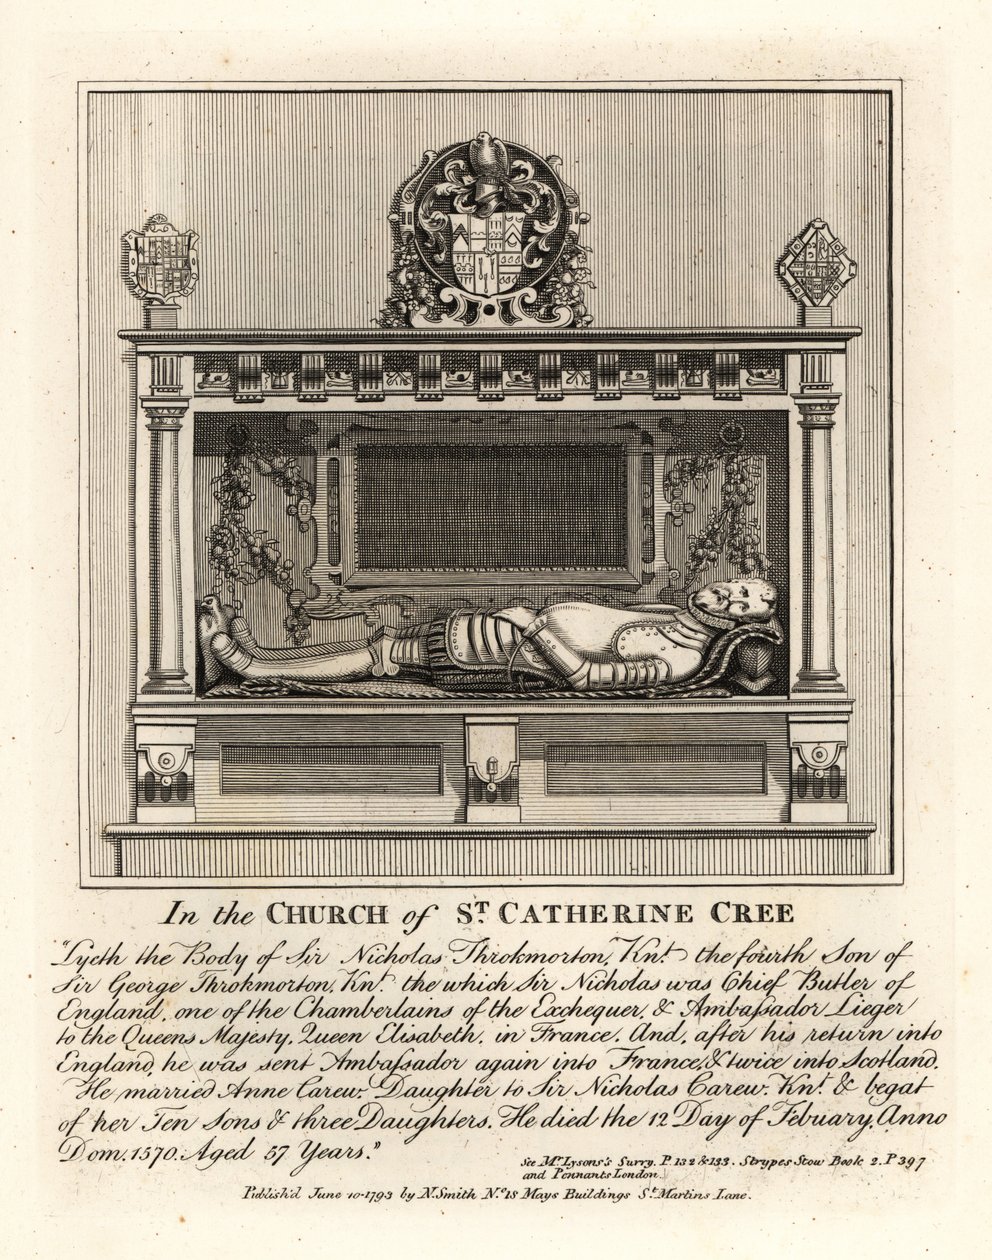 In the CHURCH of ST. CATHERINE CREE
"Lyeth the Body of Sir Nicholas Throkmorton, Knt. the fourth Son of
Sir George Throkmorton, Knt. the which Sir Nicholas was Chief Butler of
England, one of the Chamberlains of the Exchequer, & Ambaſsador Lieger
to the Queens Majesty, Queen Elisabeth, in France. And, after his return into
England, he was sent Ambaſsador again into France, & twice into Scotland.
He married Anne Carew, Daughter to Sir Nicholas Carew, Knt. & begat
of her Ten Sons & three Daughters. He died the 12 Day of Febuary, Anno
Dom. 1570. Aged 57 Years."
See Mr. Lysons's Surry. P. 132 & 133. Strypes Stow Book 2. P 397
and Pennants London.
Publish'd June 10-1793 by N. Smith No. 18 Mays Buildings St. Martins Lane.